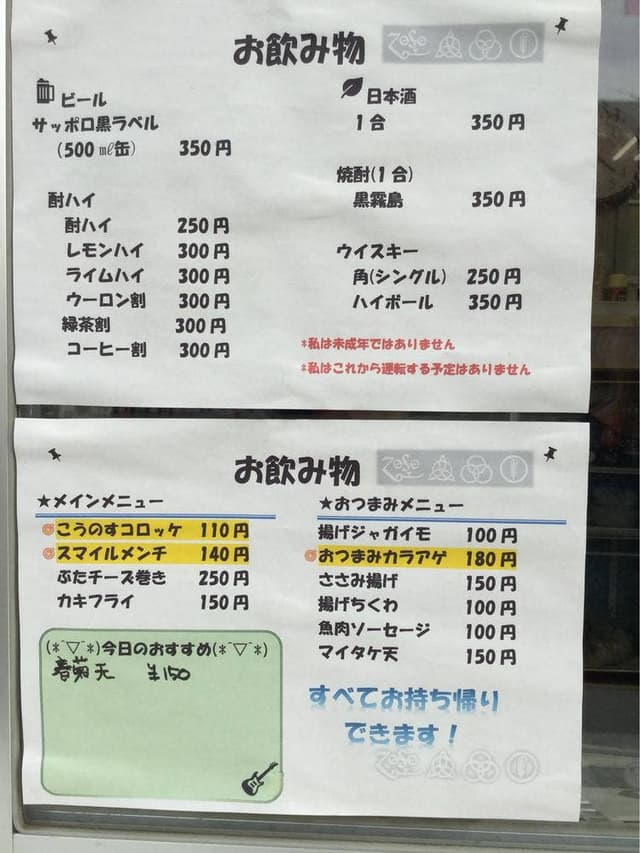 お飲み物
ビール
サッポロ黒ラベル
(500㎖缶) 350円
酎ハイ
酎ハイ 250円
レモンハイ 300円
ライムハイ 300円
ウーロン割 300円
緑茶割 300円
コーヒー割 300円
日本酒
1合 350円
焼酎(1合)
黒霧島 350円
ウイスキー
角(シングル) 250円
ハイボール 350円
*私は未成年ではありません
*私はこれから運転する予定はありません
お飲み物
★メインメニュー
こうのすコロッケ 110円
スマイルメンチ 140円
ぶたチーズ巻き 250円
カキフライ 150円
(*^▽^*)今日のおすすめ(*^▽^*)
春菊天 ¥150
★おつまみメニュー
揚げジャガイモ 100円
おつまみカラアゲ 180円
ささみ揚げ 150円
揚げちくわ 100円
魚肉ソーセージ 100円
マイタケ天 150円
すべてお持ち帰り
できます!